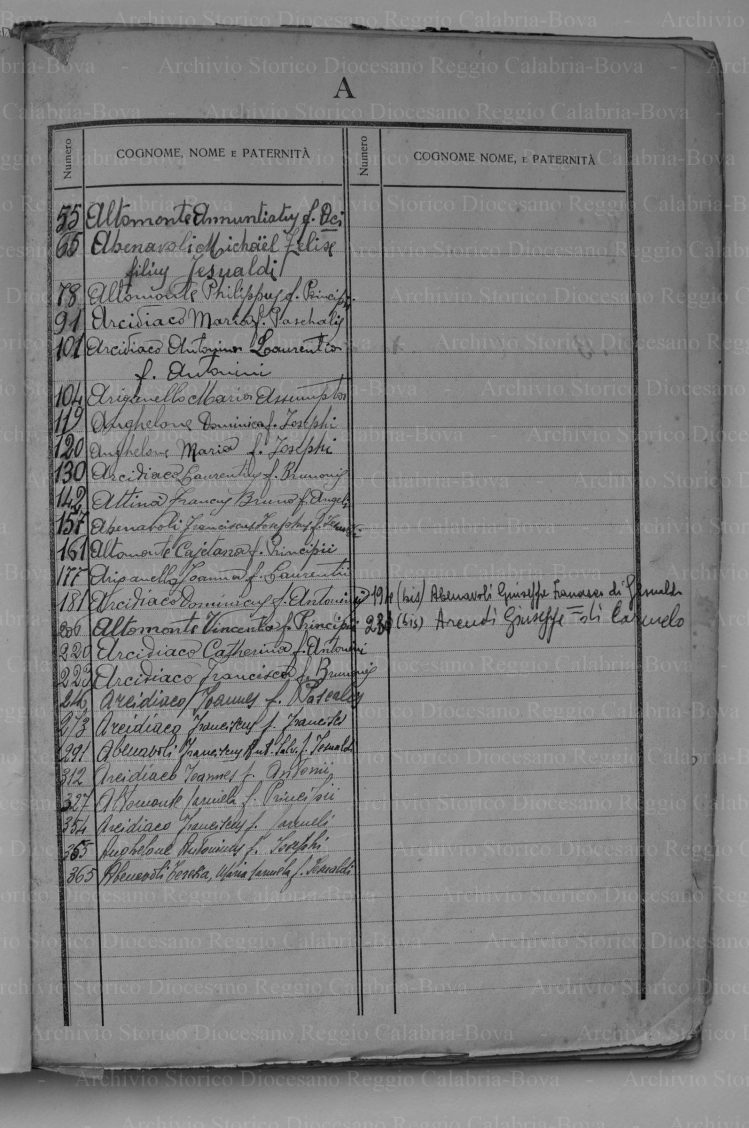 A
Numero COGNOME, NOME E PATERNITÀ
Numero COGNOME NOME, E PATERNITÀ
55 Altomonte Annuntiatus f.
65 Abenavoli Michaël Felise
filius Jesualdi
78 Altomonte Philippus f. Principii
91 Arcidiaco Maria f. Paschalis
101 Arcidiaco Antonino Laurentio
f. Antonini
104 Ariganello Maria Assumpta
119 Anghelone Dominica f. Josephi
120 Anghelone Maria f. Josephi
130 Arcidiaco Laurentius f. Brunonis
142 Attinà Francus Bruno f. Angeli
157 Abenavoli Franciscus Josephus f.
161 Altomonte Cajetana f. Principii
177 Ariganello Joanna f. Laurentii
181 Arcidiaco Dominicus f. Antonini
191 (bis) Abenavoli Giuseppe Francesco di Gesualdo
206 Altomonte Vincenta f. Principii
230 (bis) Arendi Giuseppe di Carmelo
220 Arcidiaco Catherina f. Antonini
223 Arcidiaco Francisca f. Brunonis
Arcidiaco Joannes f. Pascalis
273 Arcidiaco Franciscus f. Francisci
291 Abenavoli Franciscus Ant. Salv. f. Jesualdi
312 Arcidiaco Joannes f. Antonii
327 Altomonte Carmela f. Principii
354 Arcidiaco Franciscus f. Carmeli
363 Anghelone Antoninus f. Josephi
365 Abenavoli Teresia, Maria Carmela f. Jesualdi
Archivio Storico Diocesano Reggio Calabria-Bova